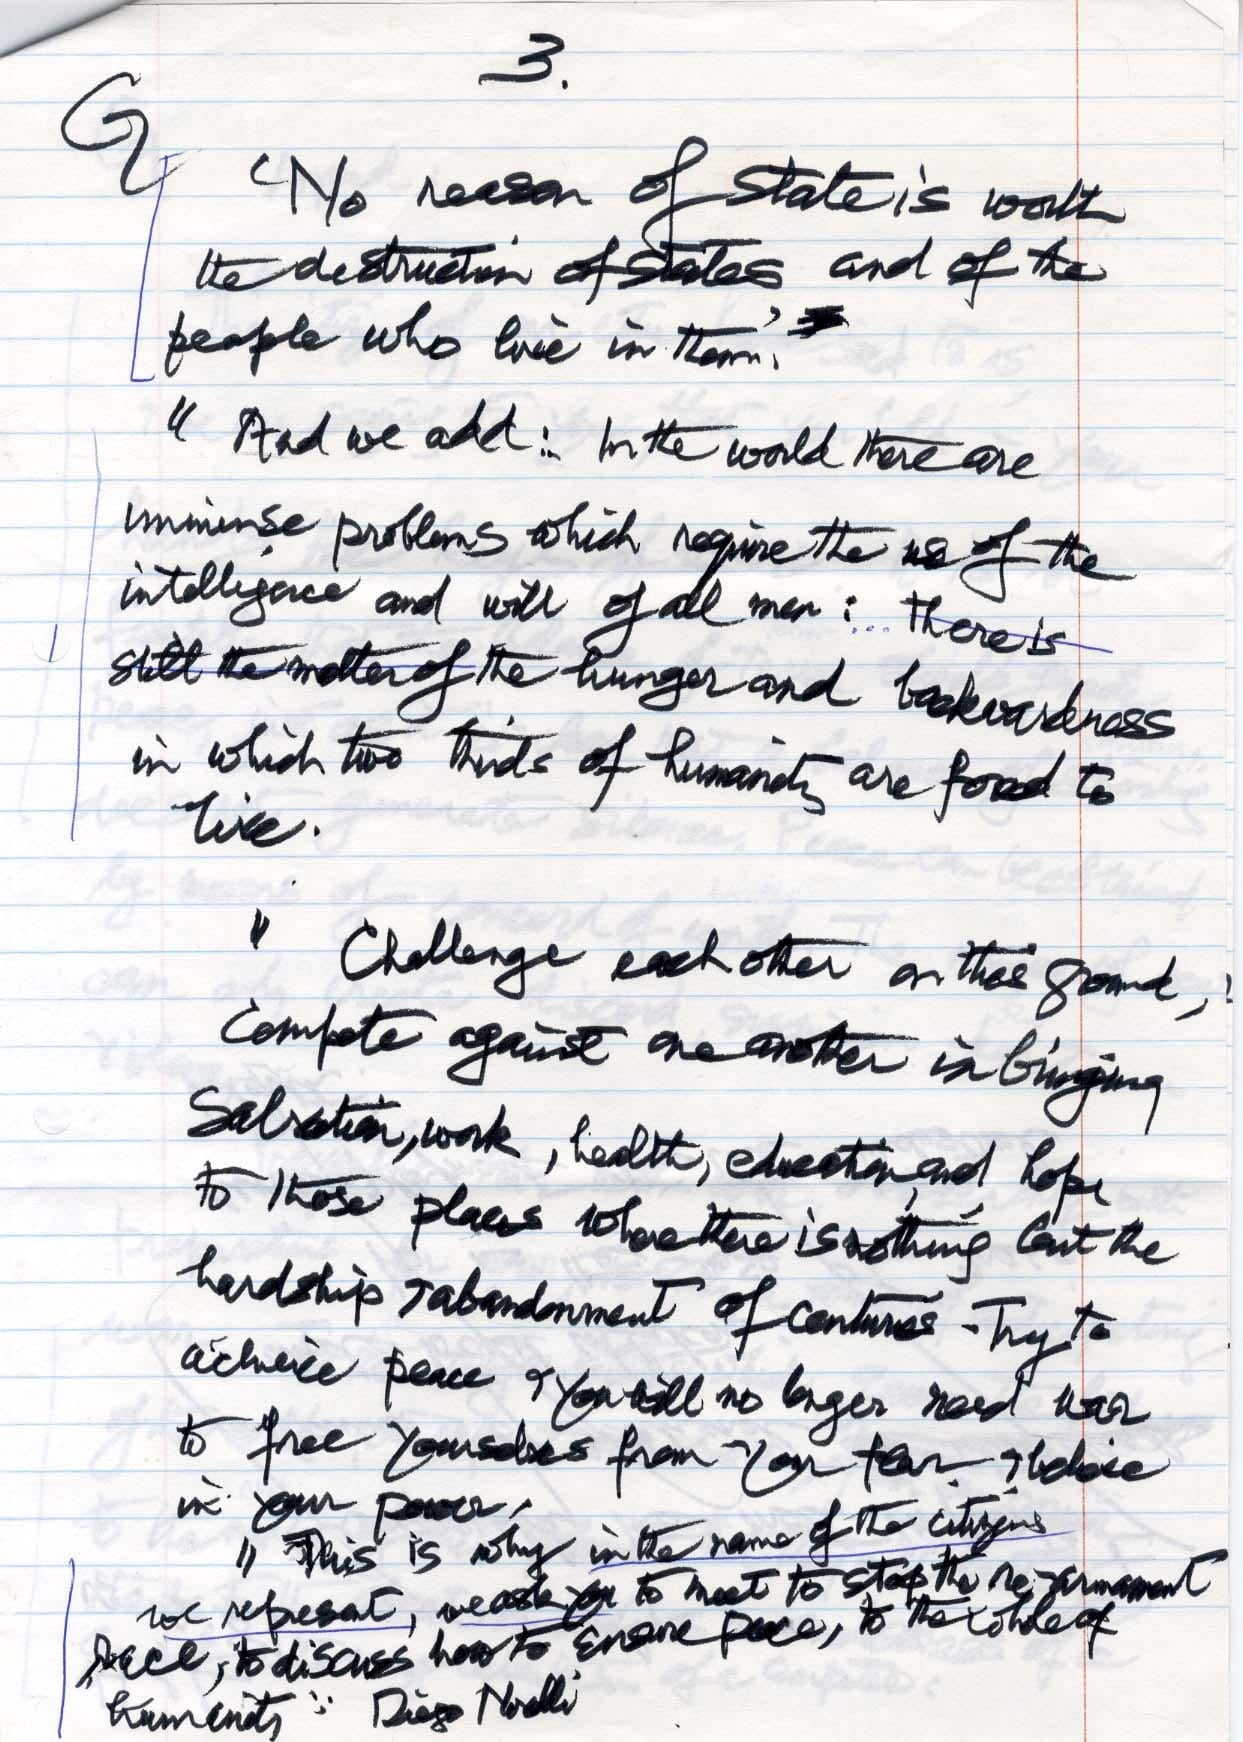 3.
"No reason of state is worth
the destruction of states and of the
people who live in them."
" And we add: In the world there are
immense problems which require the use of the
intelligence and will of all men: ... There is
still the matter of the hunger and backwardness
in which two thirds of humanity are forced to
live.
" Challenge each other on this ground,
Compete against one another in bringing
Salvation, work, health, education, and hope
to those places where there is nothing but the
hardship & abandonment of centuries - Try to
achieve peace & you will no longer need war
to free yourselves from your fear & believe
in your power.
" This is why in the name of the citizens
we represent, we ask you to meet to stop the re-armament
race, to discuss how to ensure peace, to the whole of
humanity" Diego Novelli